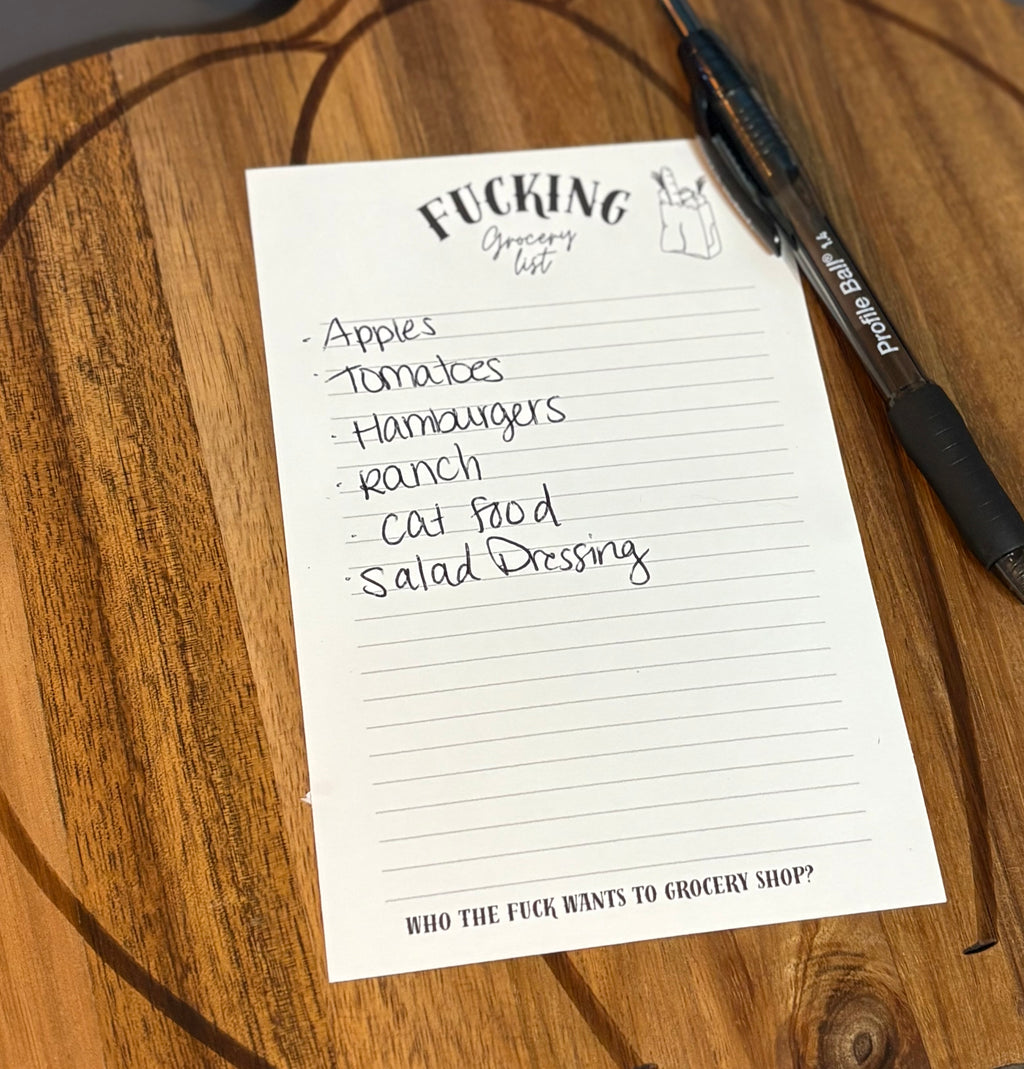 FUCKING
Grocery
list
· Apples
· Tomatoes
· Hamburgers
· Ranch
· Cat food
· Salad Dressing
WHO THE FUCK WANTS TO GROCERY SHOP?
Profile Ball® 1.4